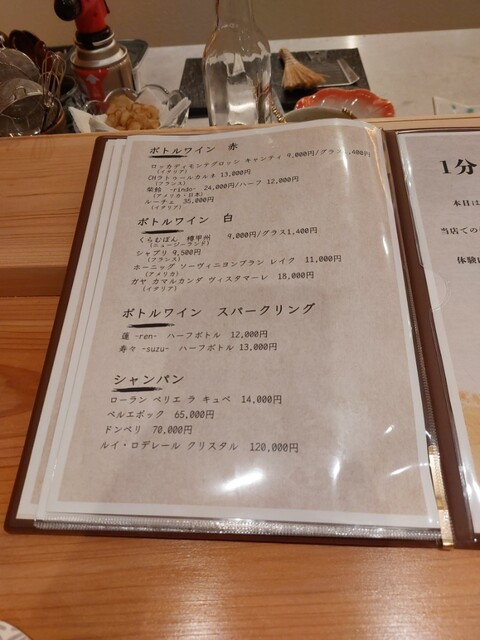 ボトルワイン 赤
ロッカディモンテグロッシ キャンティ 9,000円/グラス1,400円
(イタリア)
CHラトゥールカルネ 13,000円
(フランス)
-rindo- 24,000円/ハーフ 12,000円
(アメリカ・日本)
ルーチェ 35,000円
(イタリア)
ボトルワイン 白
くらむぼん 樽甲州 9,000円/グラス1,400円
(ニュージーランド)
シャブリ 9,500円
(フランス)
ホーニッグ ソーヴィニヨンブラン レイク 11,000円
(アメリカ)
ガヤ カマルカンダ ヴィスタマーレ 18,000円
(イタリア)
ボトルワイン スパークリング
蓮 -ren- ハーフボトル 12,000円
寿々 -suzu- ハーフボトル 13,000円
シャンパン
ローラン ペリエ ラ キュベ 14,000円
ベルエポック 65,000円
ドンペリ 70,000円
ルイ・ロデレール クリスタル 120,000円
1分
本日は
当店での
体験